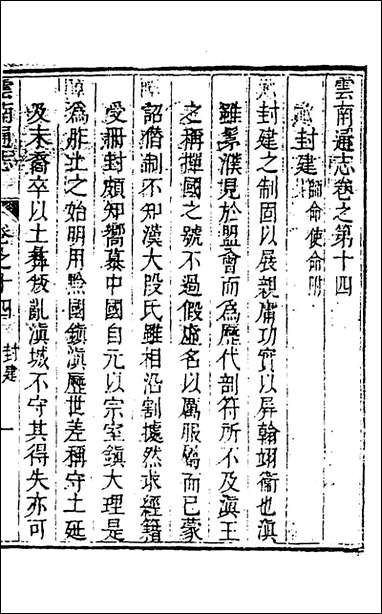 雲南通志卷之第十四
封建 師命使命附
封建之制固以展親庸功實以屏翰翊衛也滇
雖髳濮見於盟會而為歷代剖符所不及滇王
之稱撣國之號不過假虛名以羈服焉而已蒙
詔僭制不知漢大段氏雖相沿割據然求經籍
受冊封頗知嚮慕中國自元以宗室鎮大理是
為胙土之始明用黔國鎮滇歷世差稱守土延
及末裔卒以土彝叛亂滇城不守其得失亦可
雲南通志
卷之十四 封建 一